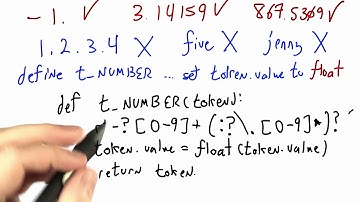 -1. ✓ 3.14159 ✓ 867.5309 ✓
1.2.3.4 X five X jenny X
define t_NUMBER ... set token.value to float
def t_NUMBER(token):
-?[0-9]+(:?\.[0-9]*)?'
token.value = float(token.value)
return token